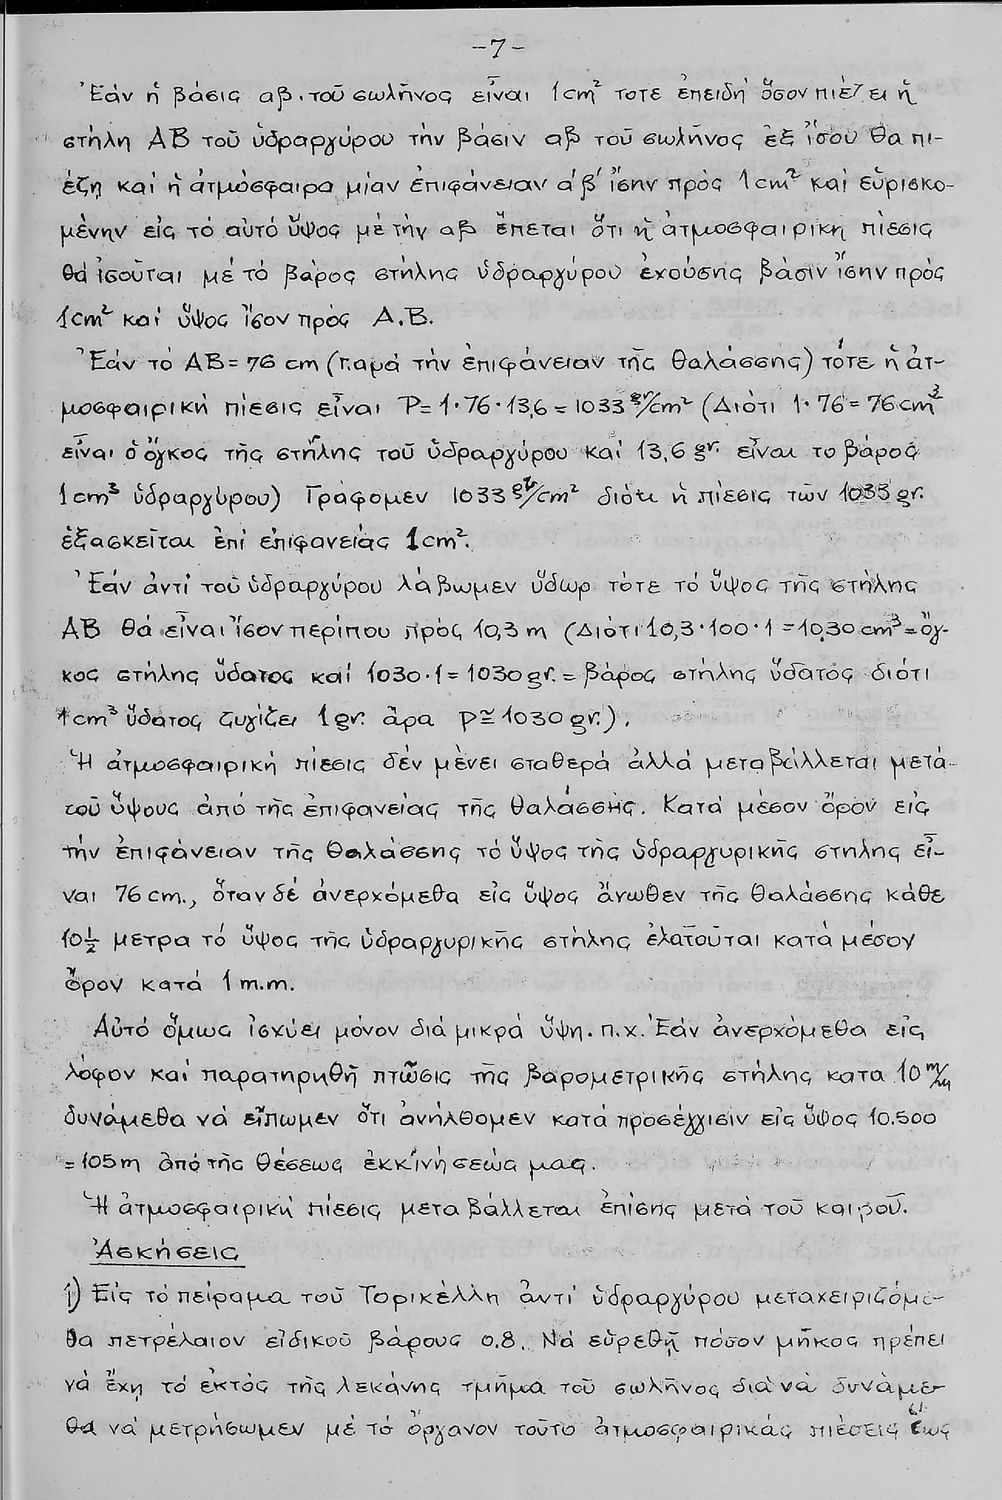 -7-
Ἐάν ἡ βάσις αβ. τοῦ σωλῆνος εἶναι 1cm² τοτε ἐπειδή ὅσον πιέζει ἡ
στήλη ΑΒ τοῦ ὑδραργύρου τήν βάσιν αβ τοῦ σωλῆνος ἐξ ἴσου θα πι-
έζῃ καί ἡ ἀτμόσφαιρα μίαν ἐπιφάνειαν α'β' ἴσην πρός 1cm² καί εὑρισκο-
μένην εἰς τό αὐτό ὕψος μέ τήν αβ ἕπεται ὅτι ἡ ἀτμοσφαιρικη πίεσις
θά ἰσοῦται μέ τό βάρος στήλης ὑδραργύρου ἐχούσης βάσιν ἴσην πρός
1cm² καί ὕψος ἴσον πρός Α.Β.
Ἐάν τό ΑΒ = 76 cm (παρά τήν ἐπιφάνειαν τῆς θαλάσσης) τότε ἡ ἀτ-
μοσφαιρική πίεσις εἶναι P = 1·76·13,6 = 1033 gr/cm² (Διότι 1·76 = 76 cm³
εἶναι ὁ ὄγκος τῆς στήλης τοῦ ὑδραργύρου καί 13,6 gr. εἶναι το βάρος
1cm³ ὑδραργύρου) Γράφομεν 1033 gr/cm² διότι ἡ πίεσις τῶν 1033 gr.
ἐξασκεῖται ἐπί ἐπιφανείας 1cm².
Ἐάν ἀντί τοῦ ὑδραργύρου λάβωμεν ὕδωρ τότε τό ὕψος τῆς στήλης
ΑΒ θά εἶναι ἴσον περίπου πρός 10,3 m (Διότι 10,3·100·1 = 10.30 cm³ = ὄγ-
κος στήλης ὕδατος καί 1030·1 = 1030 gr. = βάρος στήλης ὕδατος διότι
1cm³ ὕδατος ζυγίζει 1 gr. ἄρα p ≃ 1030 gr.).
Ἡ ἀτμοσφαιρική πίεσις δέν μένει σταθερά ἀλλά μεταβάλλεται μετά
τοῦ ὕψους ἀπό τῆς ἐπιφανείας τῆς θαλάσσης. Κατά μέσον ὅρον εἰς
τήν ἐπιφάνειαν τῆς θαλάσσης τό ὕψος τῆς ὑδραργυρικῆς στηλης εἶ-
ναι 76 cm., ὅταν δέ ἀνερχόμεθα εἰς ὕψος ἄνωθεν τῆς θαλάσσης κάθε
10½ μετρα τό ὕψος τῆς ὑδραργυρικῆς στήλης ἐλατοῦται κατά μέσον
ὅρον κατά 1 m.m.
Αὐτό ὅμως ἰσχύει μόνον διά μικρά ὕψη. π.χ. Ἐάν ἀνερχόμεθα εἰς
λόφον καί παρατηρηθῆ πτῶσις τῆς βαρομετρικῆς στήλης κατα 10 m/m
δυνάμεθα νά εἴπωμεν ὅτι ἀνήλθομεν κατά προσέγγισιν εἰς ὕψος 10.500
= 105 m ἀπό τῆς θέσεως ἐκκίνήσεώς μας.
Ἡ ἀτμοσφαιρική πίεσις μεταβάλλεται ἐπίσης μετά τοῦ καιροῦ.
Ἀσκήσεις
1) Εἰς τό πείραμα τοῦ Τορικέλλη ἀντί ὑδραργύρου μεταχειριζόμε-
θα πετρέλαιον εἰδικοῦ βάρους 0.8. Νά εὑρεθῇ πόσον μῆκος πρέπει
νά ἔχῃ τό ἐκτός τῆς λεκάνης τμῆμα τοῦ σωλῆνος διά νά δυνάμε-
θα νά μετρήσωμεν μέ τό ὄργανον τοῦτο ἀτμοσφαιρικάς πιέσεις ἕως